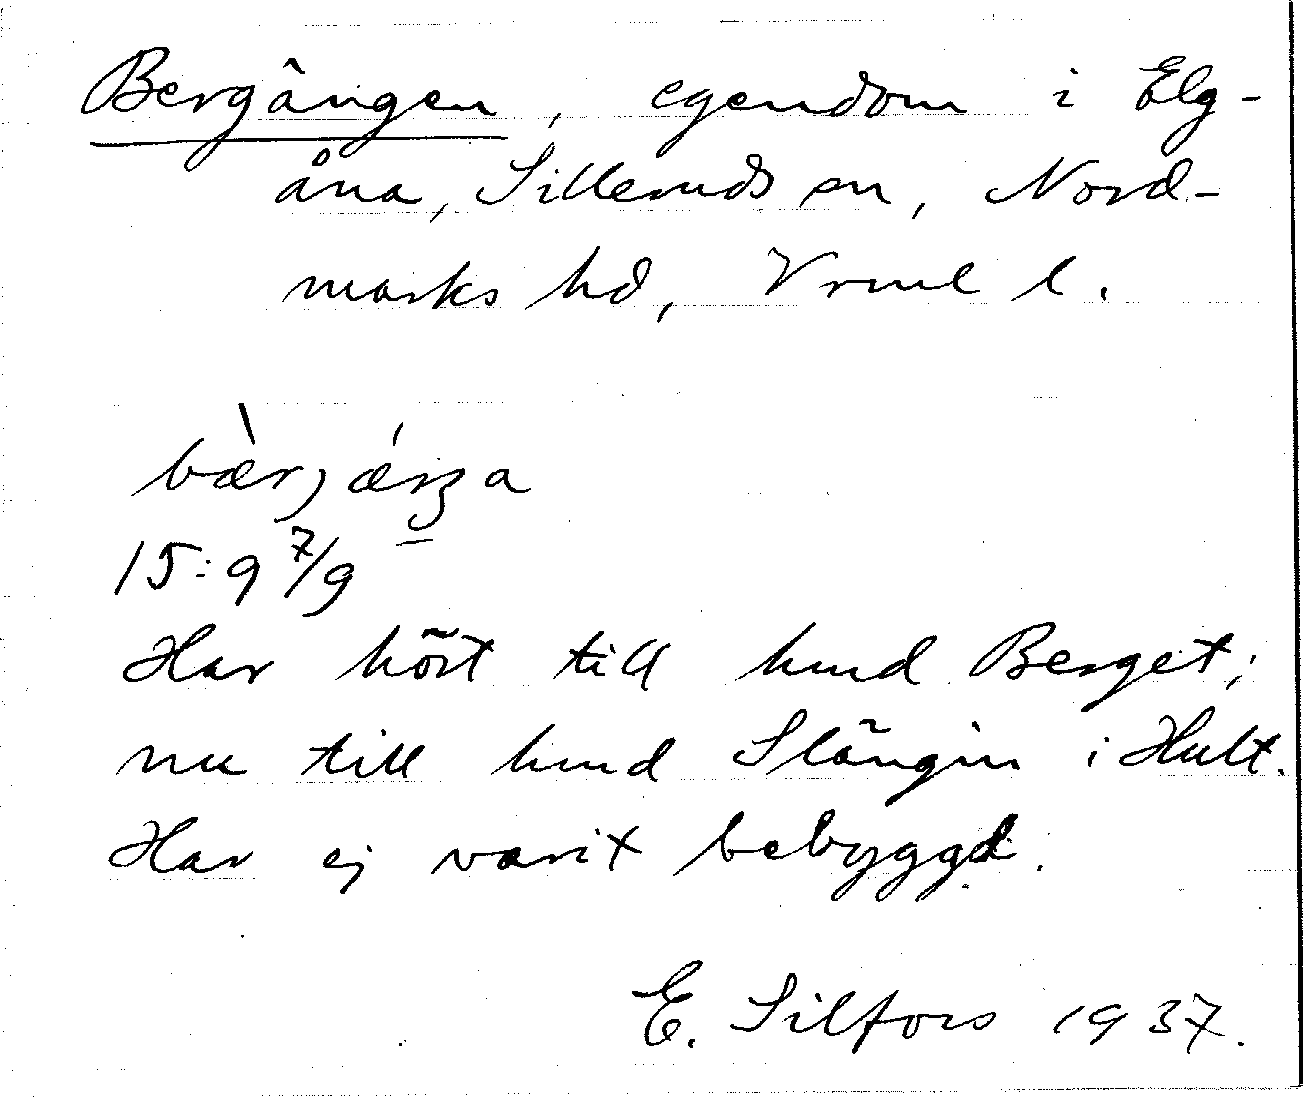 Bergängen, egendom i Elg-
åna, Silleruds sn, Nord-
marks hd, Vrml l.
bær)æŋa
15:9 7/9
Har hört till hmd Berget;
nu till hmd Slängin i Hult.
Har ej varit bebyggd.
E. Silfors 1937.